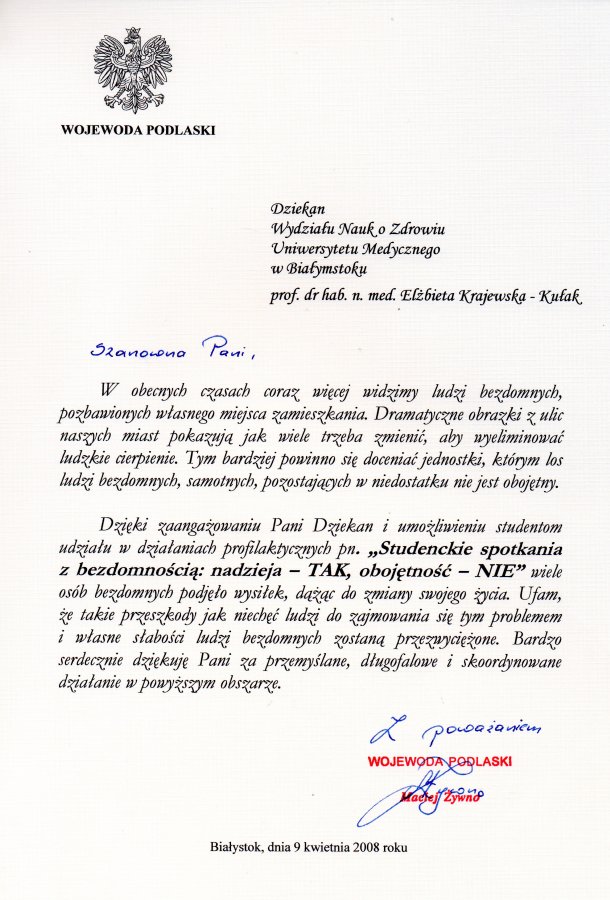 WOJEWODA PODLASKI
Dziekan
Wydziału Nauk o Zdrowiu
Uniwersytetu Medycznego
w Białymstoku
prof. dr hab. n. med. Elżbieta Krajewska - Kułak
Szanowna Pani,
W obecnych czasach coraz więcej widzimy ludzi bezdomnych,
pozbawionych własnego miejsca zamieszkania. Dramatyczne obrazki z ulic
naszych miast pokazują jak wiele trzeba zmienić, aby wyeliminować
ludzkie cierpienie. Tym bardziej powinno się doceniać jednostki, którym los
ludzi bezdomnych, samotnych, pozostających w niedostatku nie jest obojętny.
Dzięki zaangażowaniu Pani Dziekan i umożliwieniu studentom
udziału w działaniach profilaktycznych pn. „Studenckie spotkania
z bezdomnością: nadzieja – TAK, obojętność – NIE” wiele
osób bezdomnych podjęło wysiłek, dążąc do zmiany swojego życia. Ufam,
że takie przeszkody jak niechęć ludzi do zajmowania się tym problemem
i własne słabości ludzi bezdomnych zostaną przezwyciężone. Bardzo
serdecznie dziękuję Pani za przemyślane, długofalowe i skoordynowane
działanie w powyższym obszarze.
Z poważaniem
WOJEWODA PODLASKI
Maciej Żywno
Białystok, dnia 9 kwietnia 2008 roku